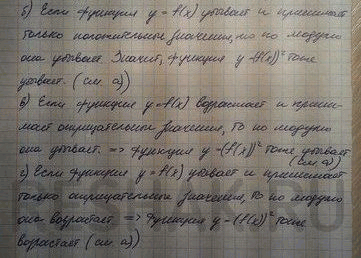 б) Если функция y = f(x) убывает и принимает
только положительные значения, то по модулю
она убывает. Значит, функция y = (f(x))² тоже
убывает. (см. а))
в) Если функция y = f(x) возрастает и прини-
мает отрицательные значения, то по модулю
она убывает. => функция y = (f(x))² тоже убывает
(см а))
г) Если функция y = f(x) убывает и принимает
только отрицательные значения, то по модулю
она возрастает. => функция y = (f(x))² тоже
возрастает (см а))
RESHAK.RU